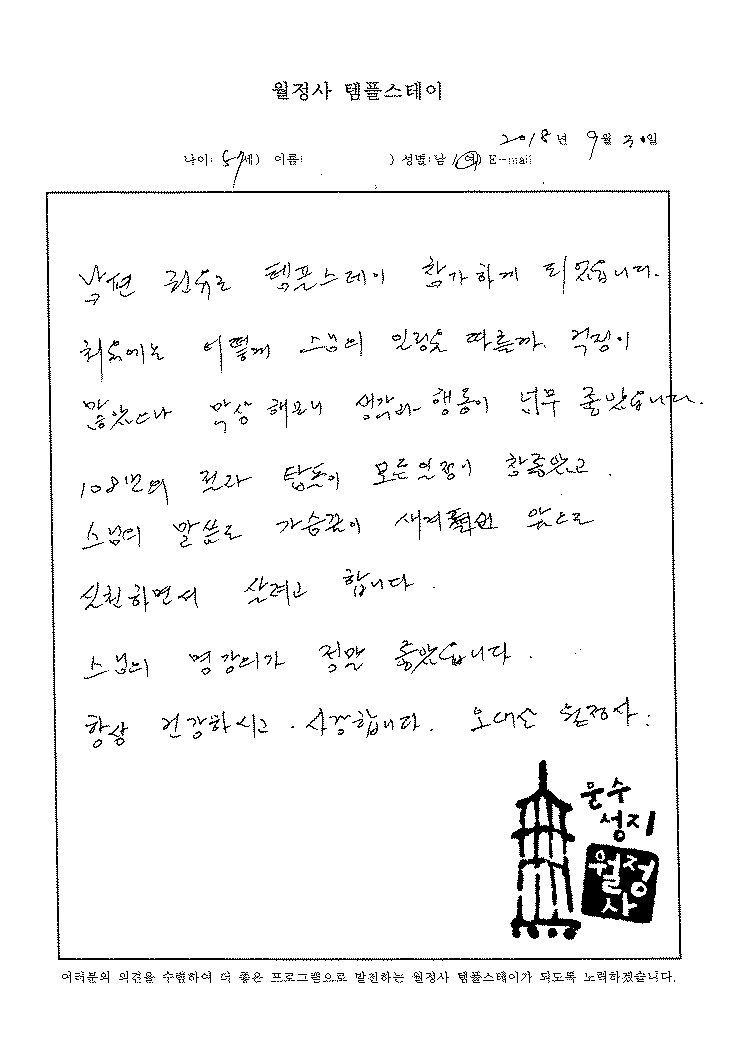 월정사 템플스테이
2018년 9월 30일
나이: 59세) 이름: ) 성별:남 / 여) E-mail
남편 권유로 템플스테이 참가하게 되었습니다.
처음에는 어떻게 스님의 일정을 따를까. 걱정이
많았으나 막상 해보니 생각과 행동이 너무 좋았습니다.
108번의 절과 탑돌이 모든일정이 참좋았고.
스님의 말씀도 가슴깊이 새겨 앞으로
실천하면서 살려고 합니다.
스님의 명강의가 정말 좋았습니다.
항상 건강하시고. 사랑합니다. 오대산 월정사.
문수
성지
월정
사
여러분의 의견을 수렴하여 더 좋은 프로그램으로 발전하는 월정사 템플스테이가 되도록 노력하겠습니다.